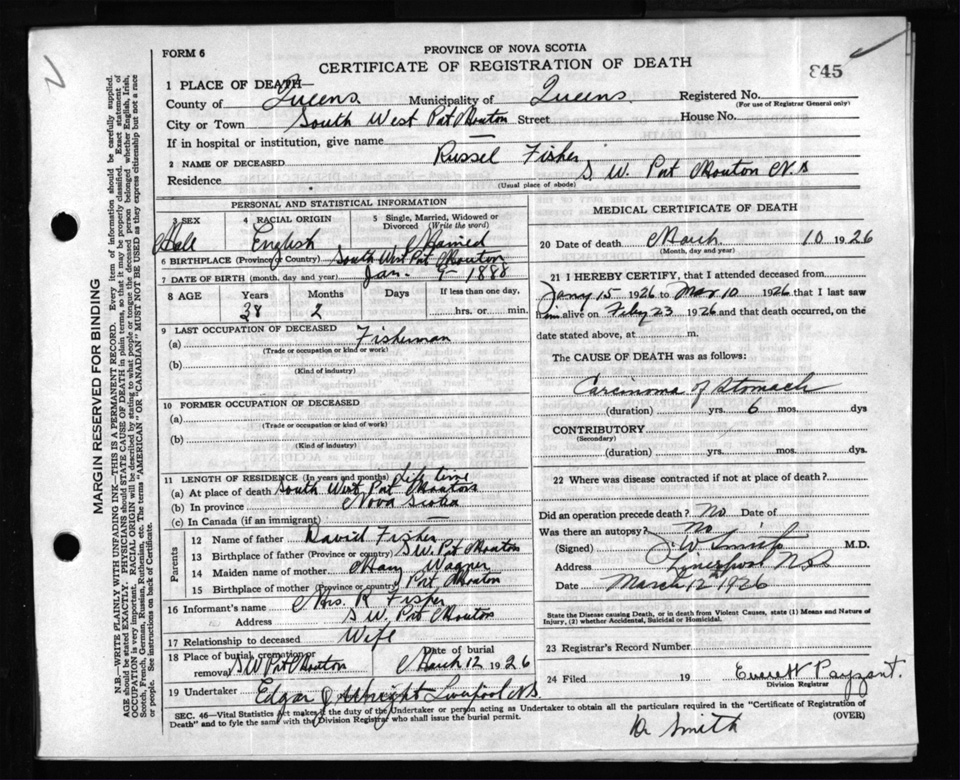 FORM 6
PROVINCE OF NOVA SCOTIA
CERTIFICATE OF REGISTRATION OF DEATH
845
1 PLACE OF DEATH—
County of Queens Municipality of Queens. Registered No.
(For use of Registrar General only)
City or Town South West Port Mouton Street House No.
If in hospital or institution, give name —
2 NAME OF DECEASED Russel Fisher
Residence S. W. Port Mouton N.S
(Usual place of abode)
PERSONAL AND STATISTICAL INFORMATION
3 SEX 4 RACIAL ORIGIN 5 Single, Married, Widowed or Divorced (Write the word)
Male English Married
6 BIRTHPLACE (Province or Country) South West Port Mouton
7 DATE OF BIRTH (month, day and year) Jan. 9 - 1888
8 AGE Years Months Days If less than one day,
38 2 hrs. or min.
9 LAST OCCUPATION OF DECEASED
(a) Fisherman
(Trade or occupation or kind or work)
(b)
(Kind of industry)
10 FORMER OCCUPATION OF DECEASED
(a)
(Trade or occupation or kind of work)
(b)
(Kind of industry)
11 LENGTH OF RESIDENCE (In years and months) Life time
(a) At place of death South West Port Mouton
(b) In province Nova Scotia
(c) In Canada (if an immigrant) —
Parents
12 Name of father David Fisher
13 Birthplace of father (Province or country) S W. Port Mouton
14 Maiden name of mother Mary Wagner
15 Birthplace of mother (Province or country) Port Mouton
16 Informant's name Mrs. R. Fisher
Address S. W. Port Mouton
17 Relationship to deceased Wife
18 Place of burial, cremation or removal S W Port Mouton Date of burial March 12 1926
19 Undertaker Edgar J. Wright Liverpool N.S
MEDICAL CERTIFICATE OF DEATH
20 Date of death March 10 1926
(Month, day and year)
21 I HEREBY CERTIFY, that I attended deceased from
Jany 15 1926 to Mar 10 1926 that I last saw
him alive on Feby 23 1926 and that death occurred, on the
date stated above, at m.
The CAUSE OF DEATH was as follows:
Carcinoma of Stomach
(duration) yrs. 6 mos. dys
CONTRIBUTORY
(Secondary)
(duration) yrs. mos. dys.
22 Where was disease contracted if not at place of death?
Did an operation precede death? No Date of
Was there an autopsy? No
(Signed) J W Smith M.D.
Address Liverpool N.S
Date March 12 1926
State the Disease causing Death, or in death from Violent Causes, state (1) Means and Nature of
Injury, (2) whether Accidental, Suicidal or Homicidal.
23 Registrar's Record Number
24 Filed 19 Everett Payzant.
Division Registrar
SEC. 46—Vital Statistics Act makes it the duty of the Undertaker or person acting as Undertaker to obtain all the particulars required in the "Certificate of Registration of
Death" and to fyle the same with the Division Registrar who shall issue the burial permit.
(OVER)
Dr Smith
MARGIN RESERVED FOR BINDING
N.B.—WRITE PLAINLY WITH UNFADING INK—THIS IS A PERMANENT RECORD. Every item of information should be carefully supplied.
AGE should be stated EXACTLY. PHYSICIANS should STATE CAUSE OF DEATH in plain terms, so that it may be properly classified. Exact statement of
OCCUPATION is very important. RACIAL ORIGIN will be described by stating to what people or tongue the deceased person belonged whether English, Irish,
Scotch, French, German, Russian, Ruthenian, etc. The terms "AMERICAN" OR "CANADIAN" MUST NOT BE USED as they express citizenship but not a race
or people. See instructions on back of Certificate.